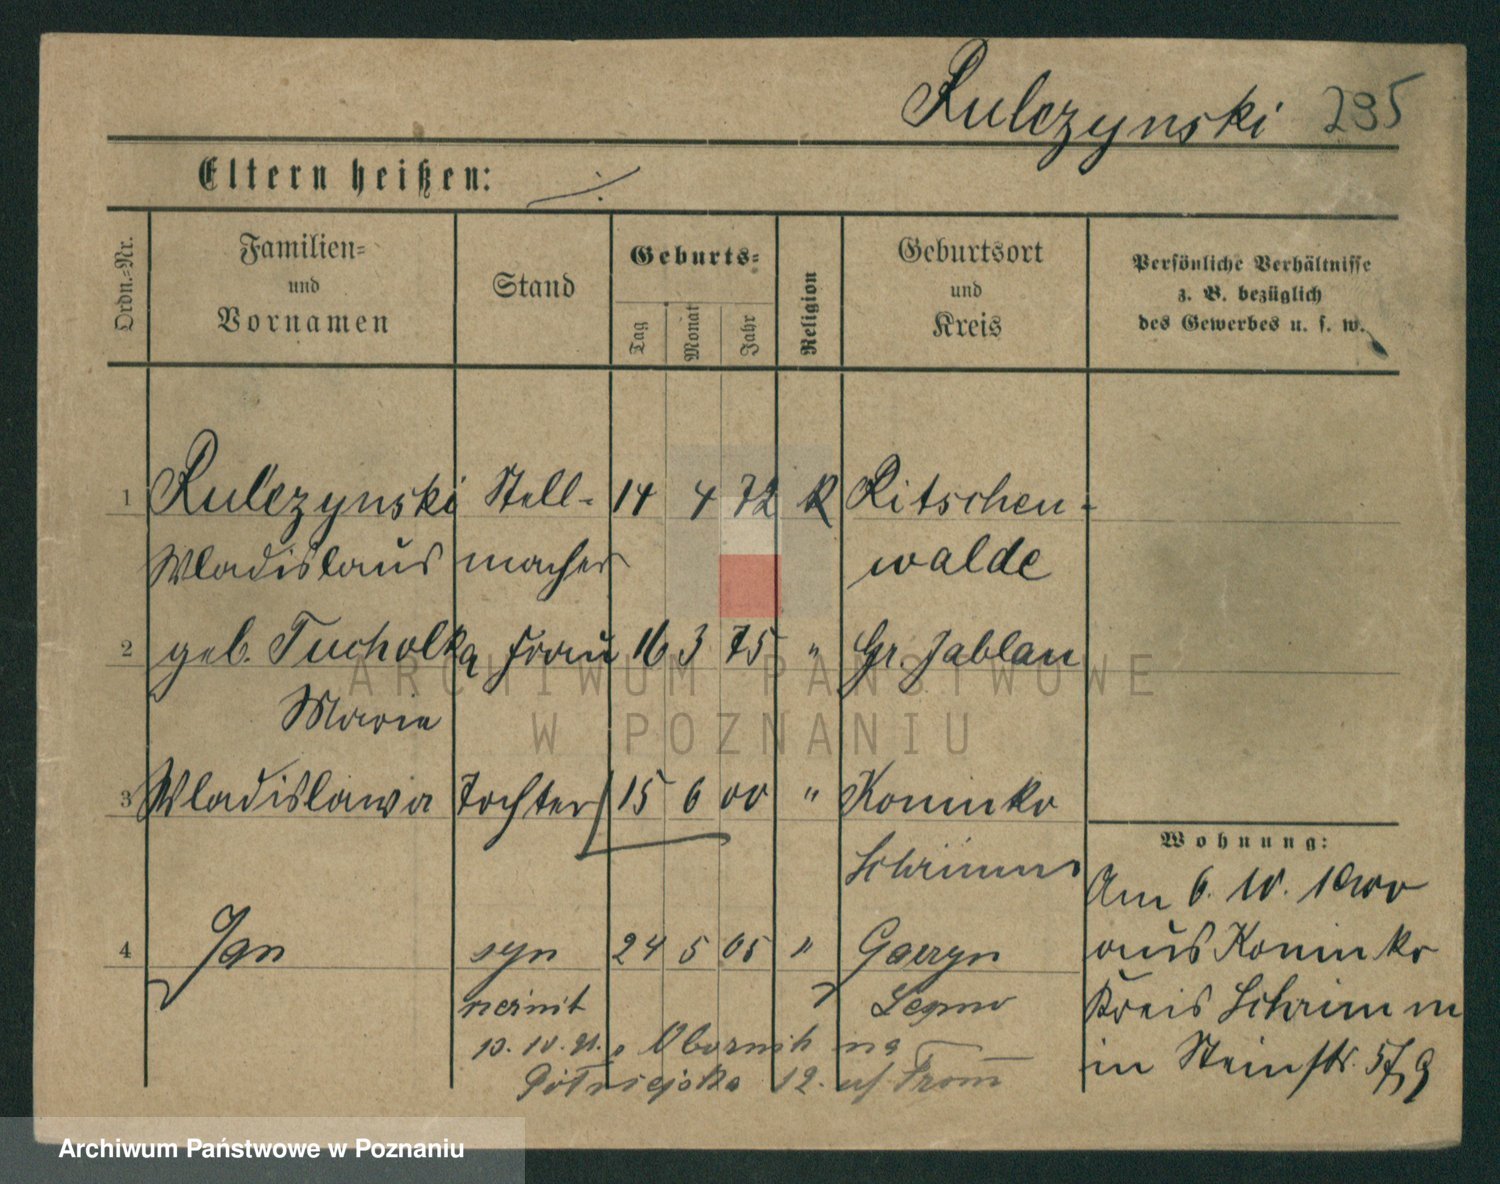 Rulczynski 295
Eltern heißen: ./.
Ordn.=Nr.
Familien=
und
Vornamen
Stand
Geburts=
Tag
Monat
Jahr
Religion
Geburtsort
und
Kreis
Persönliche Verhältnisse
z. B. bezüglich
des Gewerbes u. s. w.
1 Rulczynski Stell- 14 4 72 K Ritschen-
Wladislaus macher walde
2 geb. Tucholka Frau 16 3 75 " Gr. Jablau
Marie
3 Wladislawa Tochter 15 6 00 " Koninko
Schrimm
4 Jan syn 24 5 05 " Garzyn
13. 10. 21. Obornik na
12. Fromm
Wohnung:
Am 6. 10. 1900
aus Koninko
Kreis Schrimm
in Steinstr. 57
ARCHIWUM PAŃSTWOWE
W POZNANIU
Archiwum Państwowe w Poznaniu